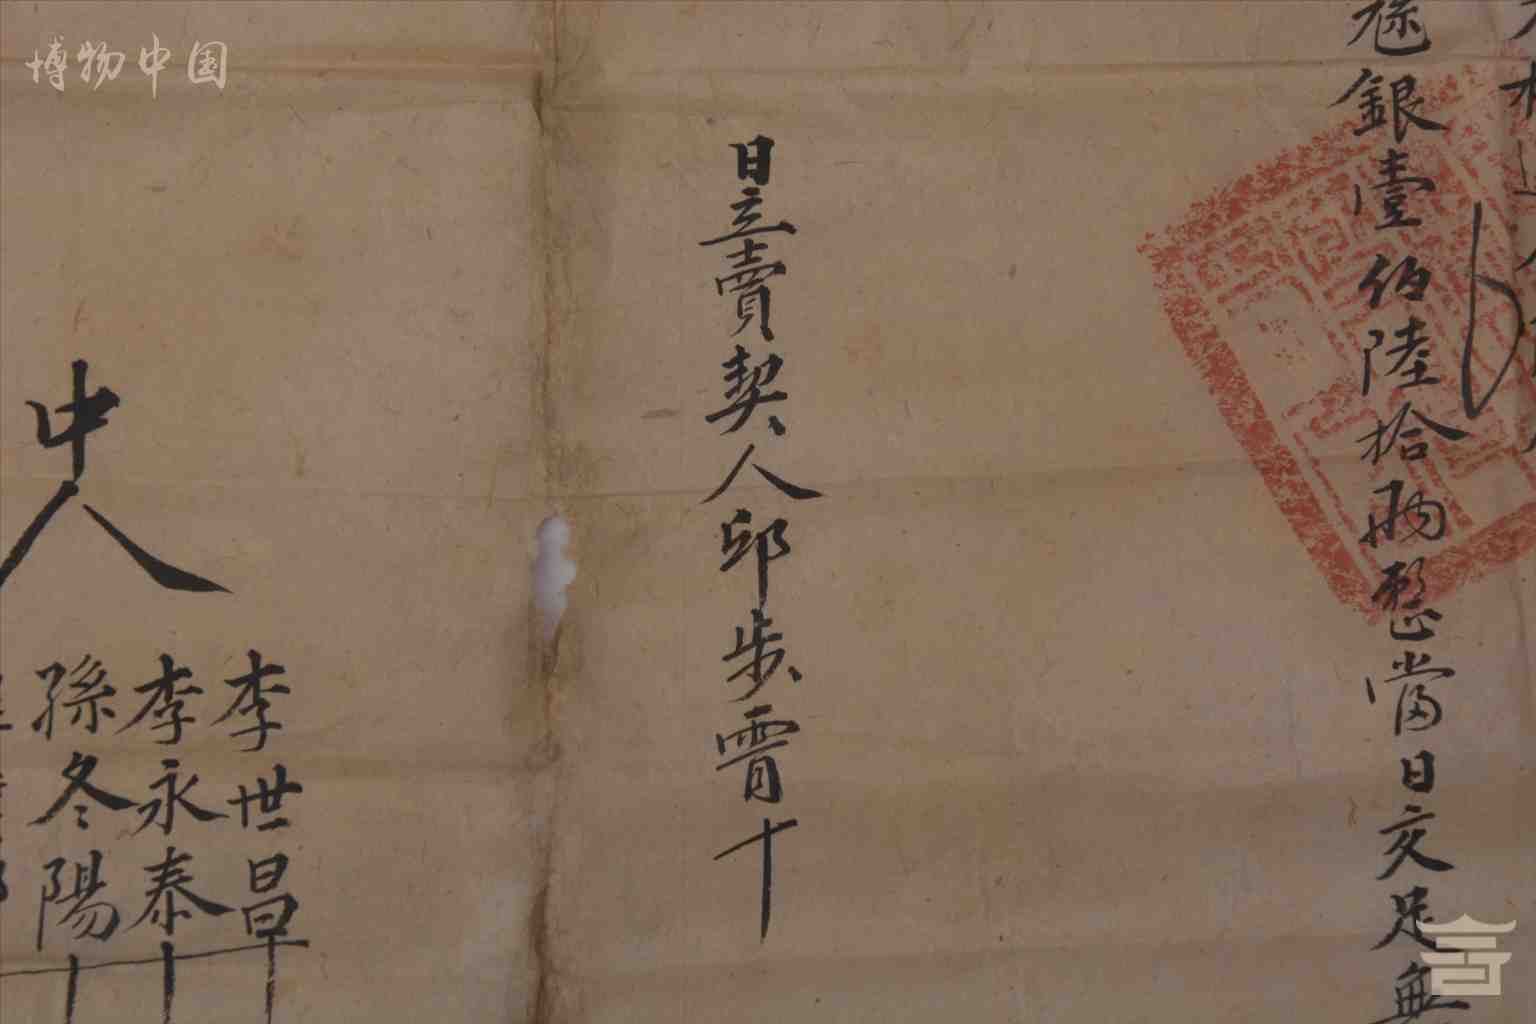 博物中国
銀壹佰陸拾兩整當日交足無
日立賣契人邱步雲十
中人
李世昌十
李永泰十
孫冬陽十